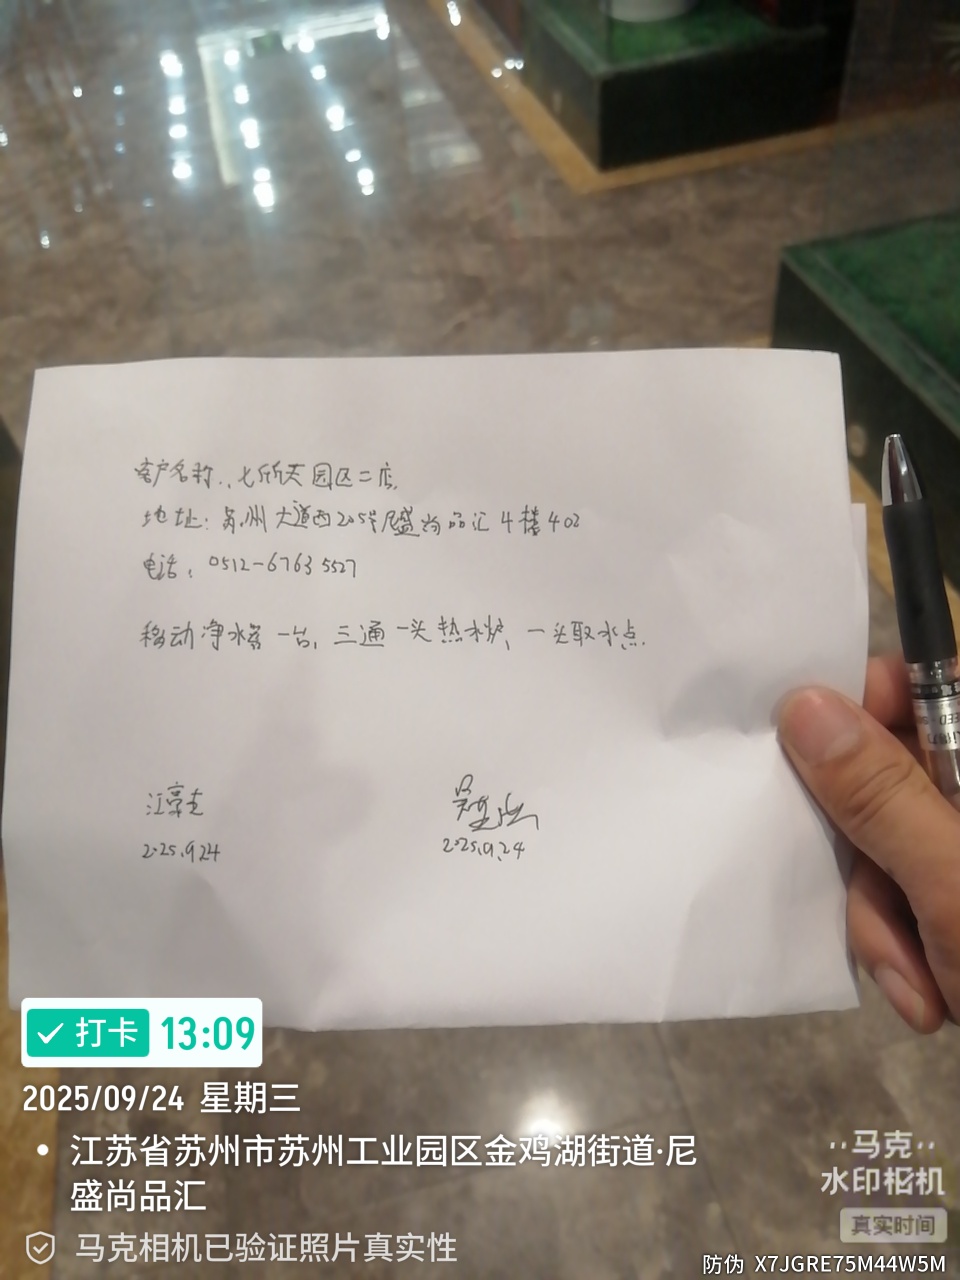 客户名称:七欣天园区二店
地址:苏州大道西205号尼盛尚品汇4楼402
电话:0512-67635527
移动净水器一台,三通一头热水炉,一头取水点.
2025.9.24
2025.9.24
打卡 13:09
2025/09/24 星期三
江苏省苏州市苏州工业园区金鸡湖街道·尼
盛尚品汇
马克相机已验证照片真实性
马克
水印相机
真实时间
防伪 X7JGRE75M44W5M